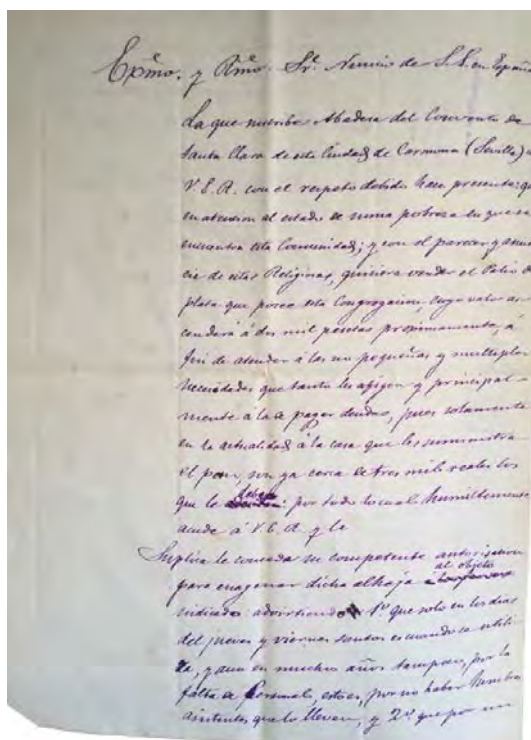 Exmo. y Rmo. Sr. Nuncio de S. S. en España
La que suscribe Abadesa del Convento de
Santa Clara de esta Ciudad de Carmona (Sevilla) a
V. E. R. con el respeto debido hace presente: que
en atencion al estado de suma pobreza en que se
encuentra esta Comunidad; y con el parecer y anuen
cia de estas Religiosas, quisiera vender el Palio de
plata que posee esta Congregacion, cuyo valor as-
cenderá á dos mil pesetas proximamente, á
fin de atender á las no pequeñas y multiples
necesidades que tanto les afligen y principal-
mente á la de pagar deudas, pues solamente
en la actualidad á la casa que les suministra
el pan, son ya cerca de tres mil reales los
que le deben: por todo lo cual humildemente
acude á V. E. R. y le
Suplica le conceda su competente autorizacion
para enagenar dicha alhaja al objeto
indicado: advirtiendo 1º que solo en los dias
del jueves y viernes santos es cuando se utili-
za, y aun en muchos años tampoco, por la
falta de Personal, esto es, por no haber hombres
asistentes que lo lleven, y 2º que por un